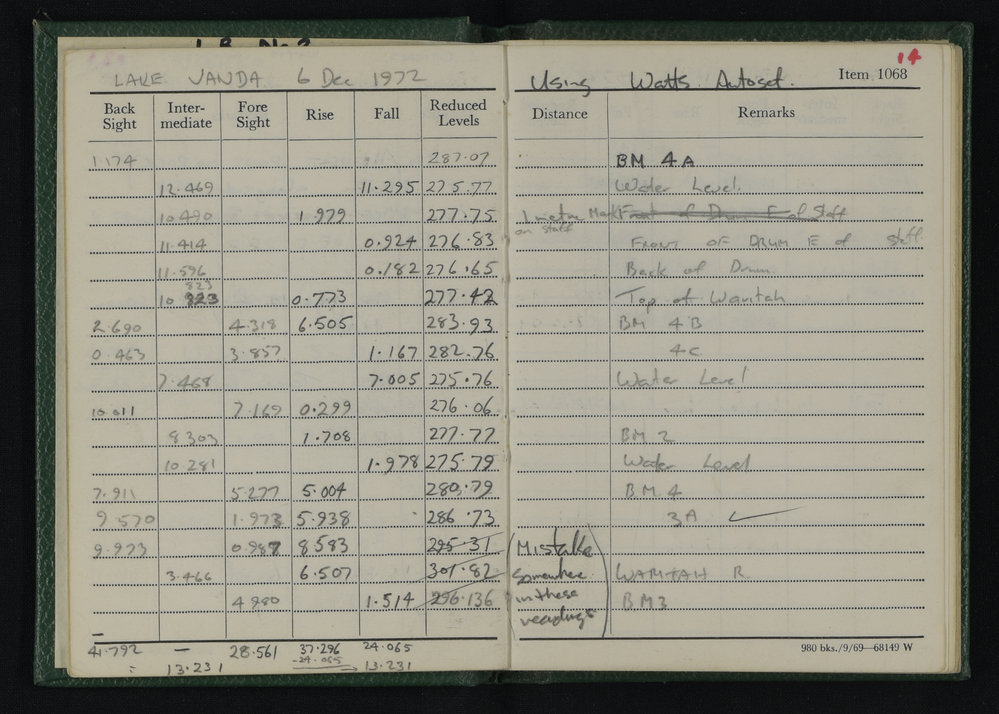 LAKE VANDA 6 Dec 1972
Back Sight Inter-mediate Fore Sight Rise Fall Reduced Levels
1.174 287.07
12.469 11.295 275.77
10.490 1.979 277.75
11.414 0.924 276.83
11.596 0.182 276.65
823
10 0.773 277.42
2.690 4.318 6.505 283.93
0.463 3.857 1.167 282.76
7.468 7.005 275.76
10.011 7.169 0.299 276.06
8303 1.708 277.77
10.281 1.978 275.79
7.911 5.277 5.004 280.79
9.570 1.973 5.938 286.73
9.973 0.987 8583 295.31
3.466 6.507 301.82
4980 1.514 296.136
41.792 — 28.561 37.296 24.065
= 13.231 -24.065 13.231
14
Using Watts Autoset. Item 1068
Distance Remarks
BM 4A
Water Level.
1 metre Mark Front of Drum E of Staff
on staff
FRONT OF DRUM E of staff
Back of Drum
Top of Wanitah
BM 4B
4C
Water Level
BM 2
Water Level
BM 4
3A ✓
(Mistake
Somewhere WANTAH R
in these BM3
readings)
980 bks./9/69—68149 W